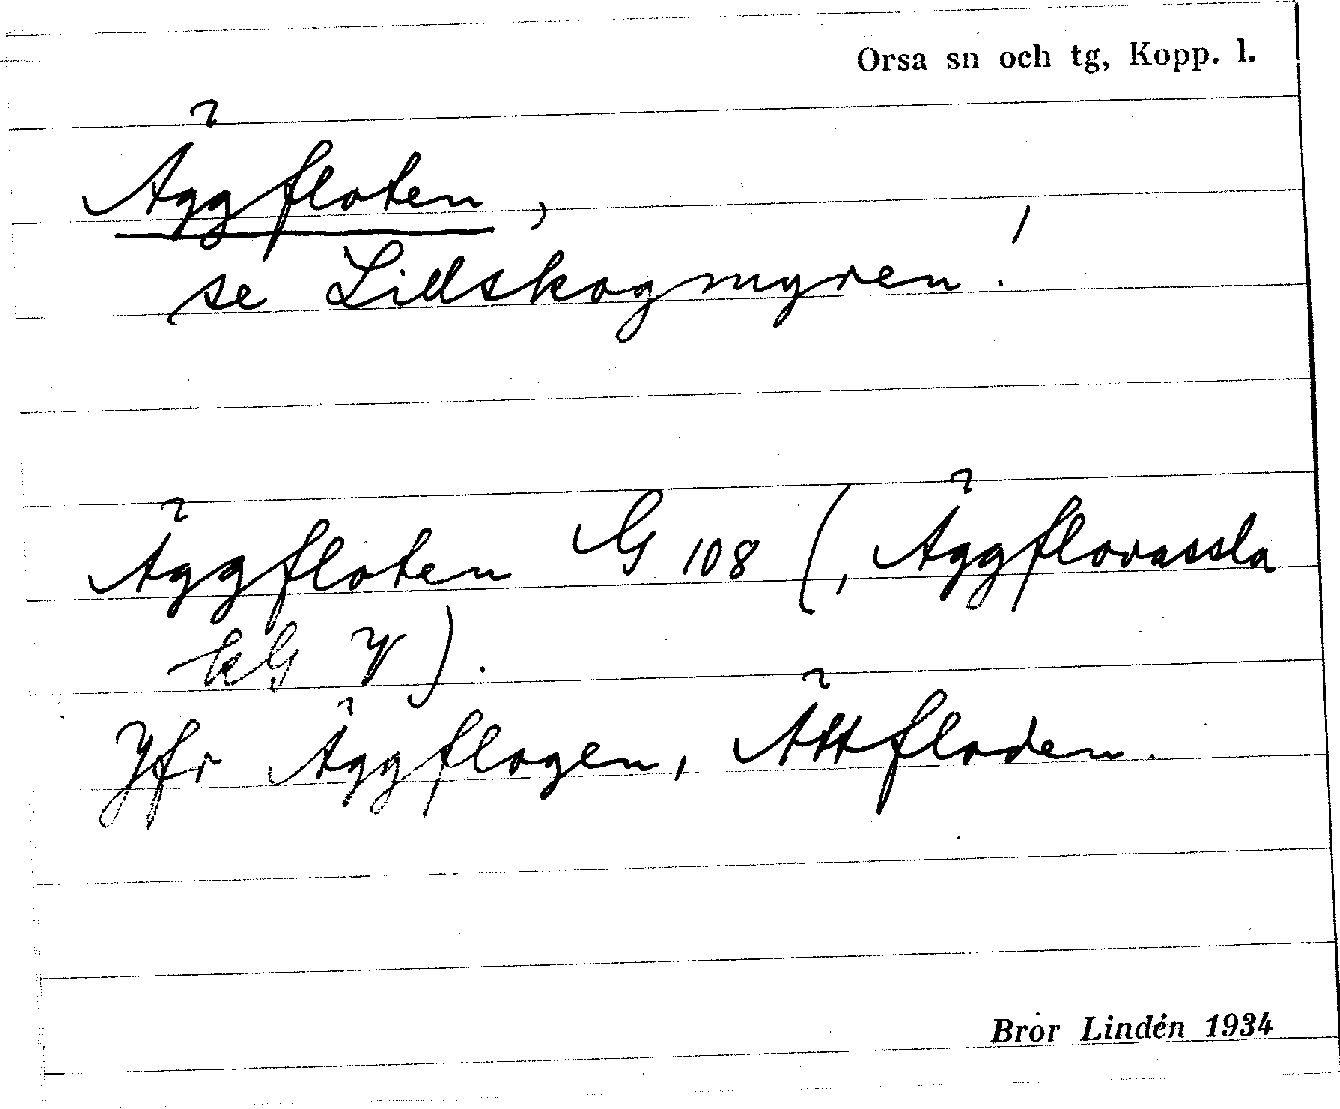 Orsa sn och tg, Kopp. l.
Äggfloten,
se Lillskogmyren!
Äggfloten G 108 (, Äggflovassla
kG V).
Jfr Äggflogen, Ättfloden.
Bror Lindén 1934